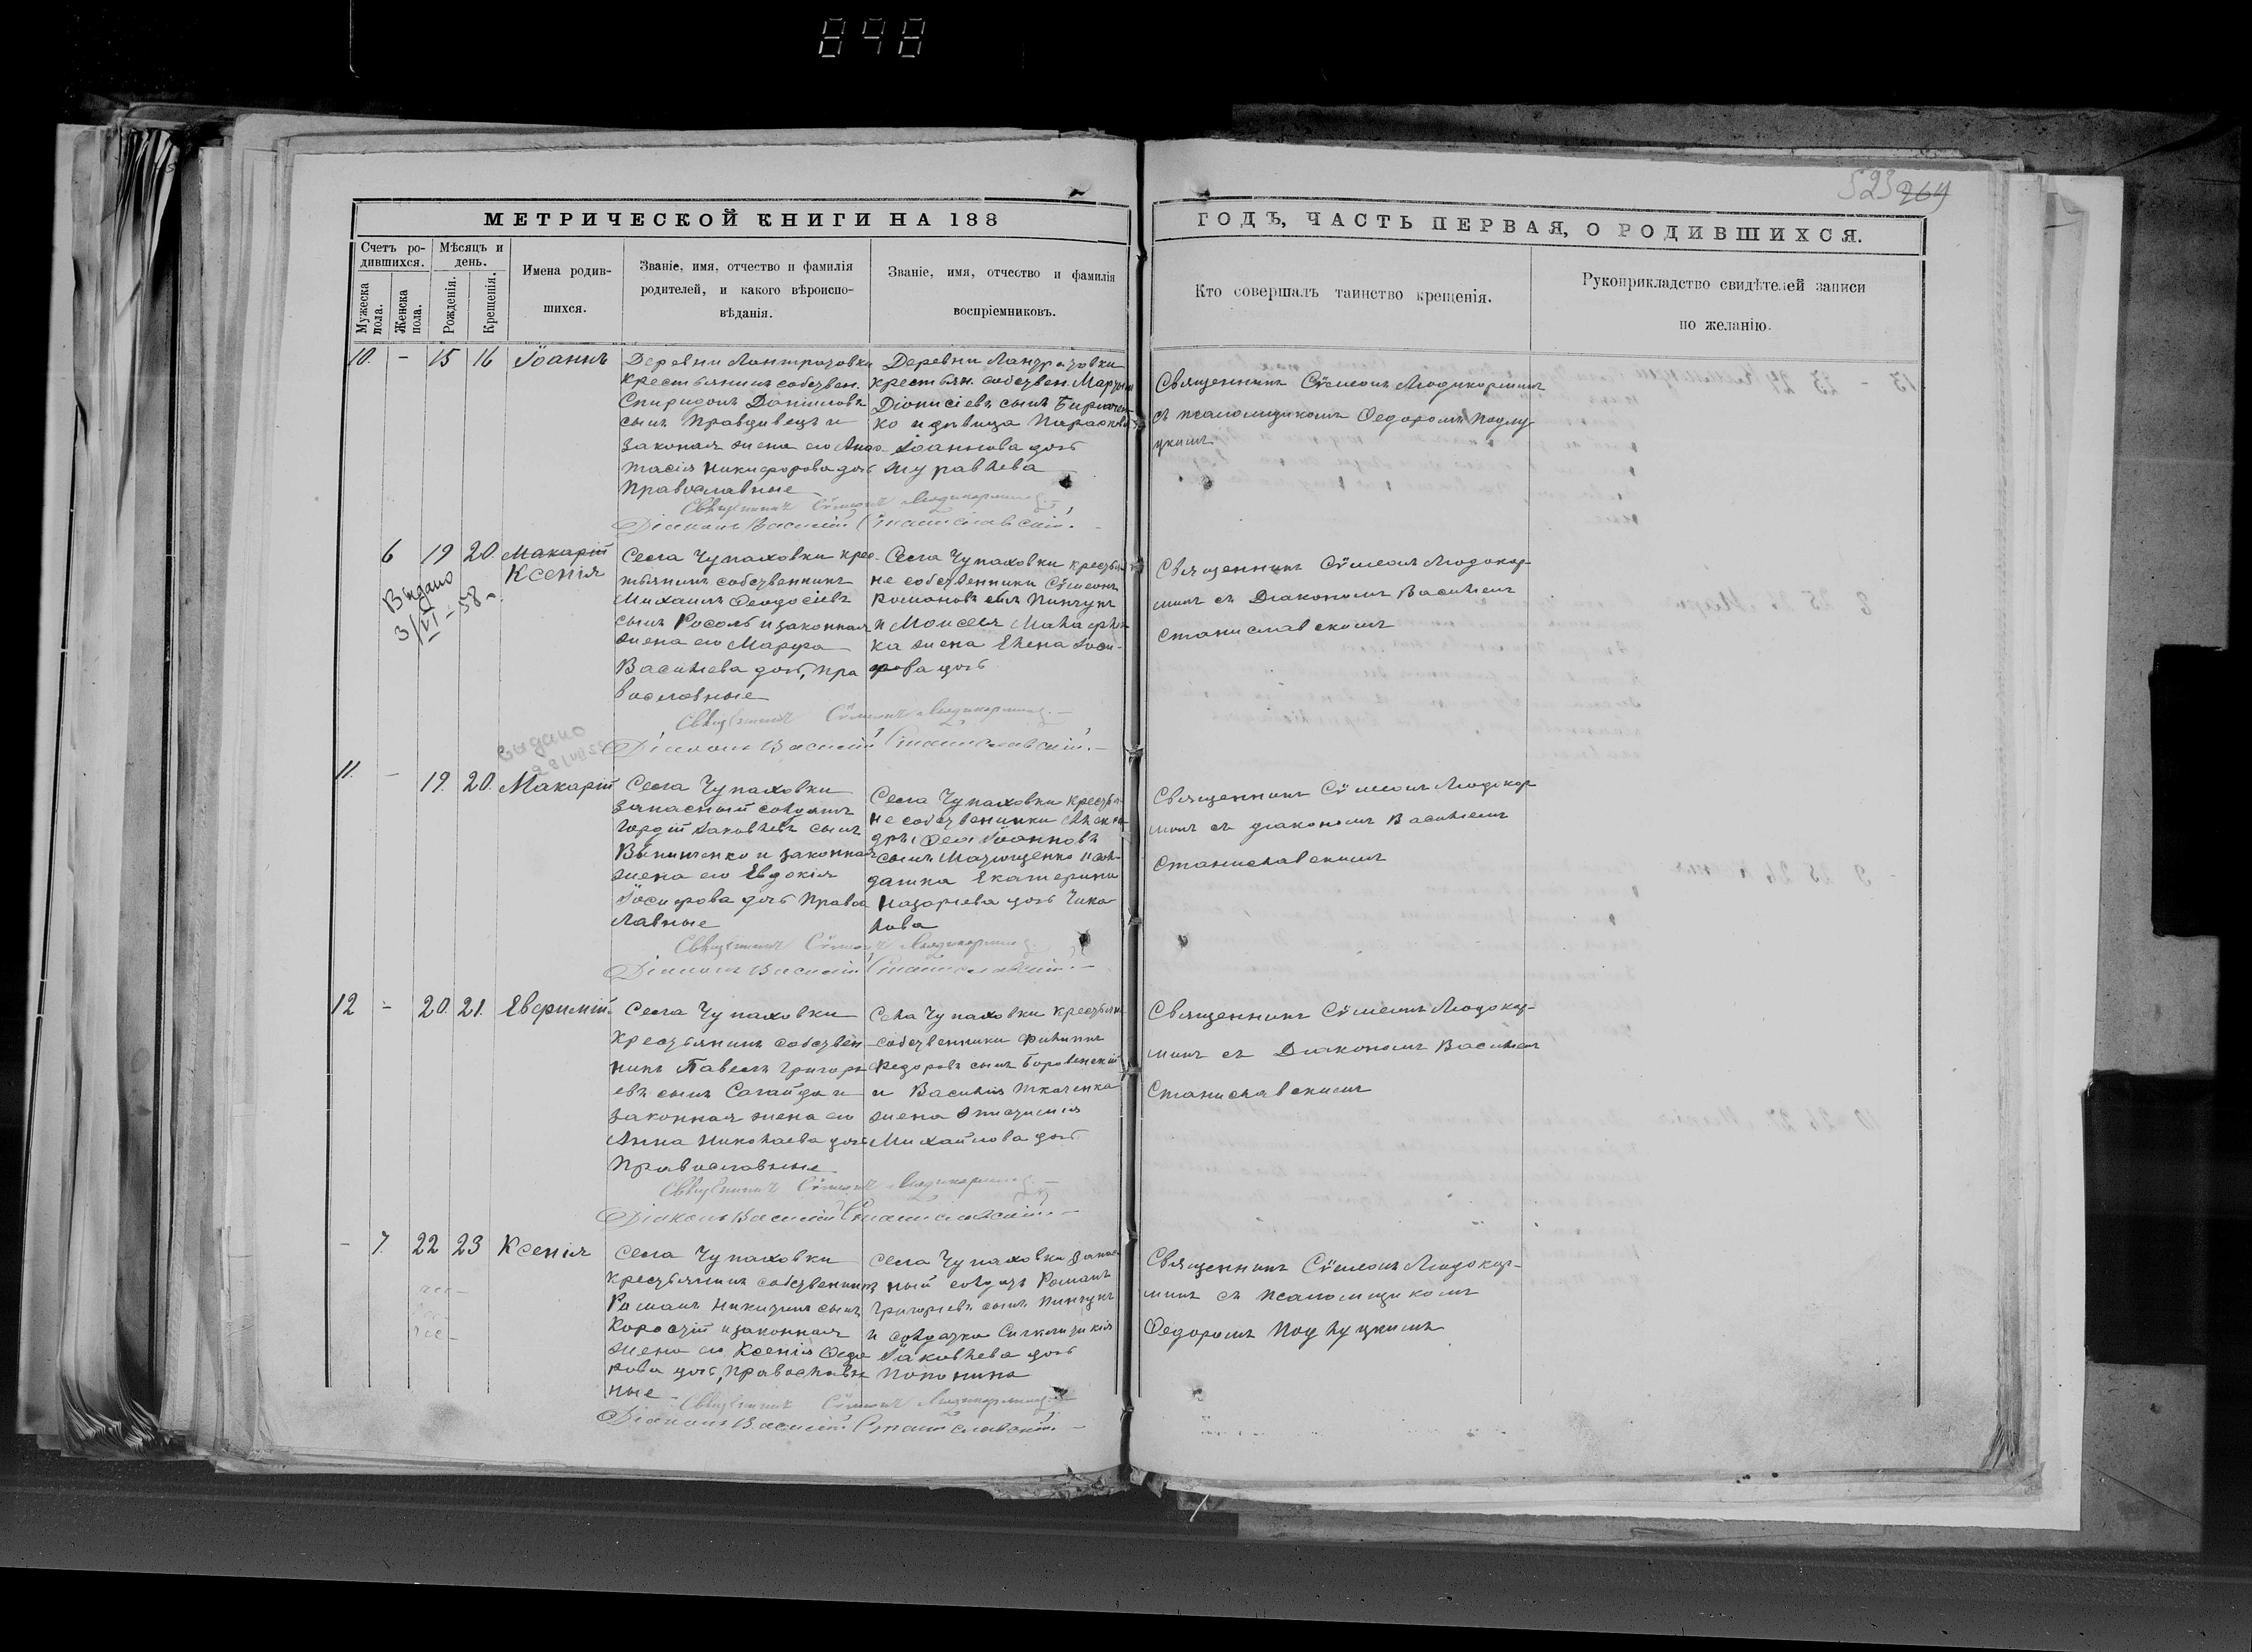 898
523 264
МЕТРИЧЕСКОЙ КНИГИ НА 188
ГОДЪ, ЧАСТЬ ПЕРВАЯ, О РОДИВШИХСЯ.
Счетъ ро-
дившихся.
Мужеска
пола.
Женска
пола.
Мѣсяцъ и
день.
Рожденія.
Крещенія.
Имена родив-
шихся.
Званіе, имя, отчество и фамилія
родителей, и какого вѣроиспо-
вѣданія.
Званіе, имя, отчество и фамилія
воспріемниковъ.
Кто совершалъ таинство крещенія.
Рукоприкладство свидѣтелей записи
по желанію.
10. - 15 16 Іоаннъ
Деревни
крестьянинъ собствен.
Спиридонъ Даніиловъ
сынъ Правдивецъ и
законная жена его Анас-
тасія Никифорова дочь
Православные
Деревни
крестьян. собствен.
Діонисіевъ сынъ
ко и дѣвица
Іоаннова дочь
Журавлева
Священникъ Сѵмеонъ
съ псаломщикомъ Ѳедоромъ Подлу
цкимъ
Священникъ Сѵмеонъ
Діаконъ Василій Станиславскій.
6 19 20. Макарій
Ксенія
Выдано
3/VI-58
Села Чупаховки крес-
тьянинъ собственникъ
Михаилъ Ѳеодосіевъ
сынъ Росоль и законная
жена его Марфа
Васильева дочь, Пра
вославные
Села Чупаховки крестья
не собственники Сѵмеонъ
Романовъ сынъ Пинчукъ
и Моисея
ка жена Елена Іоси-
фова дочь
Священникъ Сѵмеонъ
съ Діакономъ Василіемъ
Станиславскимъ
Священникъ Сѵмеонъ
Діаконъ Василій Станиславскій.-
Выдано
11. - 19. 20. Макарій
Села Чупаховки
запасный солдатъ
Гордій Іаковлевъ сынъ
и законная
жена его Евдокія
Іосифова дочь Правос
лавные
Села Чупаховки крестья
не собственники
Іоанновъ
сынъ и сол-
датка Екатерина
Назарьева дочь Чика
лова
Священникъ Сѵмеонъ
съ діакономъ Василіемъ
Станиславскимъ
Священникъ Сѵмеонъ
Діаконъ Василій Станиславскій.-
12 - 20. 21. Евфимій.
Села Чупаховки
Крестьянинъ собствен
никъ Павелъ Григорь
евъ сынъ Сагайда и
законная жена его
Анна Николаева дочь
Православные
Села Чупаховки крестьяне
собственники Филиппъ
Ѳедоровъ сынъ Боровенскій
и Василія Ткаченка
жена
Михайлова дочь
Священникъ Сѵмеонъ
съ Діакономъ Василіемъ
Станиславскимъ
Священникъ Сѵмеонъ
Діаконъ Василій Станиславскій.-
- 7. 22 23 Ксенія
Села Чупаховки
крестьянинъ собственникъ
Романъ Никитинъ сынъ
и законная
жена его Ксенія Ѳедо
рова дочь, Православ
ные
Села Чупаховки запас
ный солдатъ Романъ
Григорьевъ сынъ Пинчукъ
и солдатка
Іаковлева дочь
Священникъ Сѵмеонъ
съ псаломщикомъ
Ѳедоромъ Подлуцкимъ
Священникъ Сѵмеонъ
Діаконъ Василій Станиславскій.-